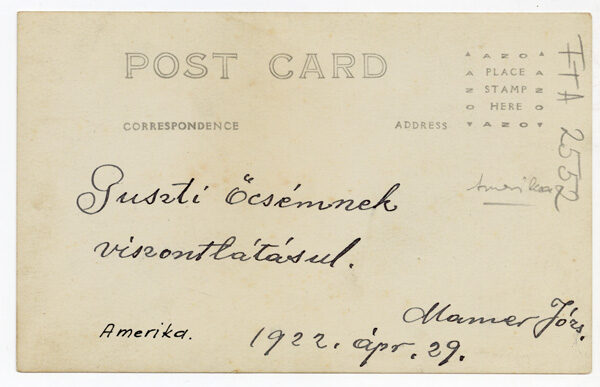 POST CARD
CORRESPONDENCE
ADDRESS
AZO
PLACE
STAMP
HERE
AZO
TTA 2552
Amerika
Guszti Öcsémnek
viszontlátásul.
Mamer Józs.
Amerika.
1922. ápr. 29.